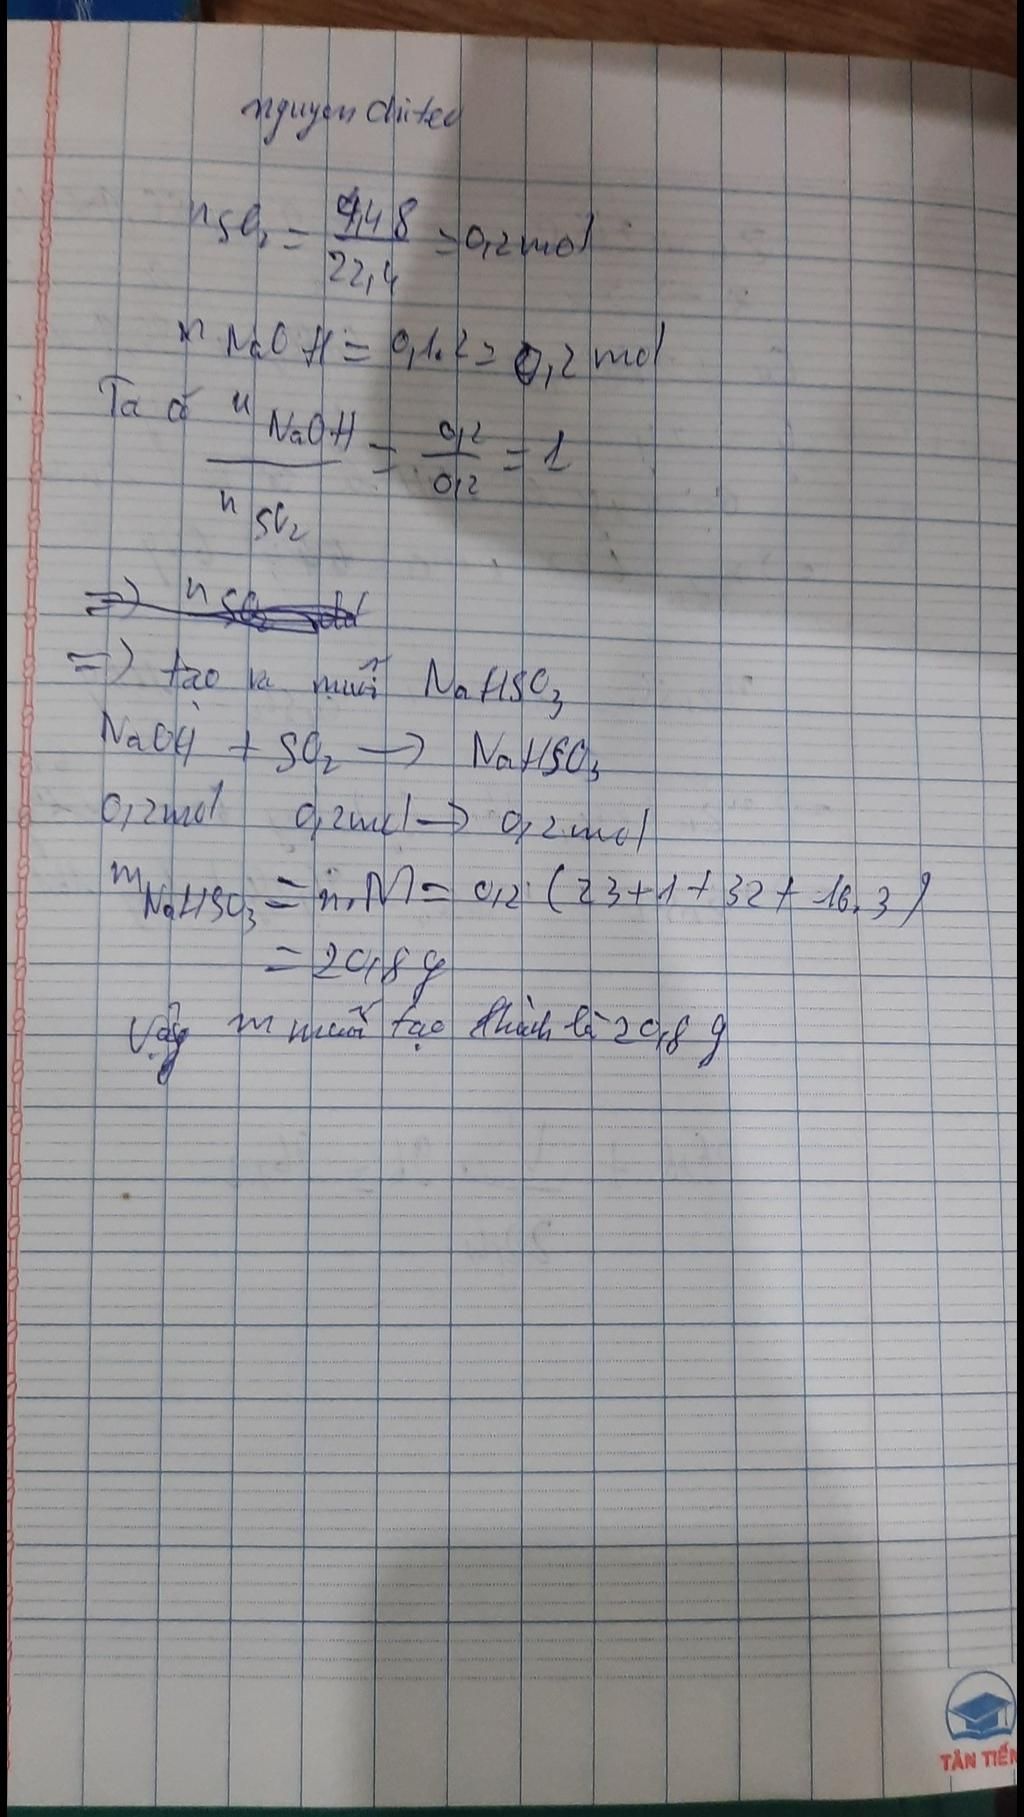 nguyen chiteu
nSO2 = 4,48/22,4 = 0,2 mol
nNaOH = 0,1.2 = 0,2 mol
Ta có nNaOH/nSO2 = 0,2/0,2 = 1
=> nSO2
=> tạo ra muối NaHSO3
NaOH + SO2 → NaHSO3
0,2mol 0,2mol → 0,2mol
mNaHSO3 = n.M = 0,2.(23+1+32+16.3)
= 20,8 g
Vậy m muối tạo thành là 20,8 g
TÂN TIẾN